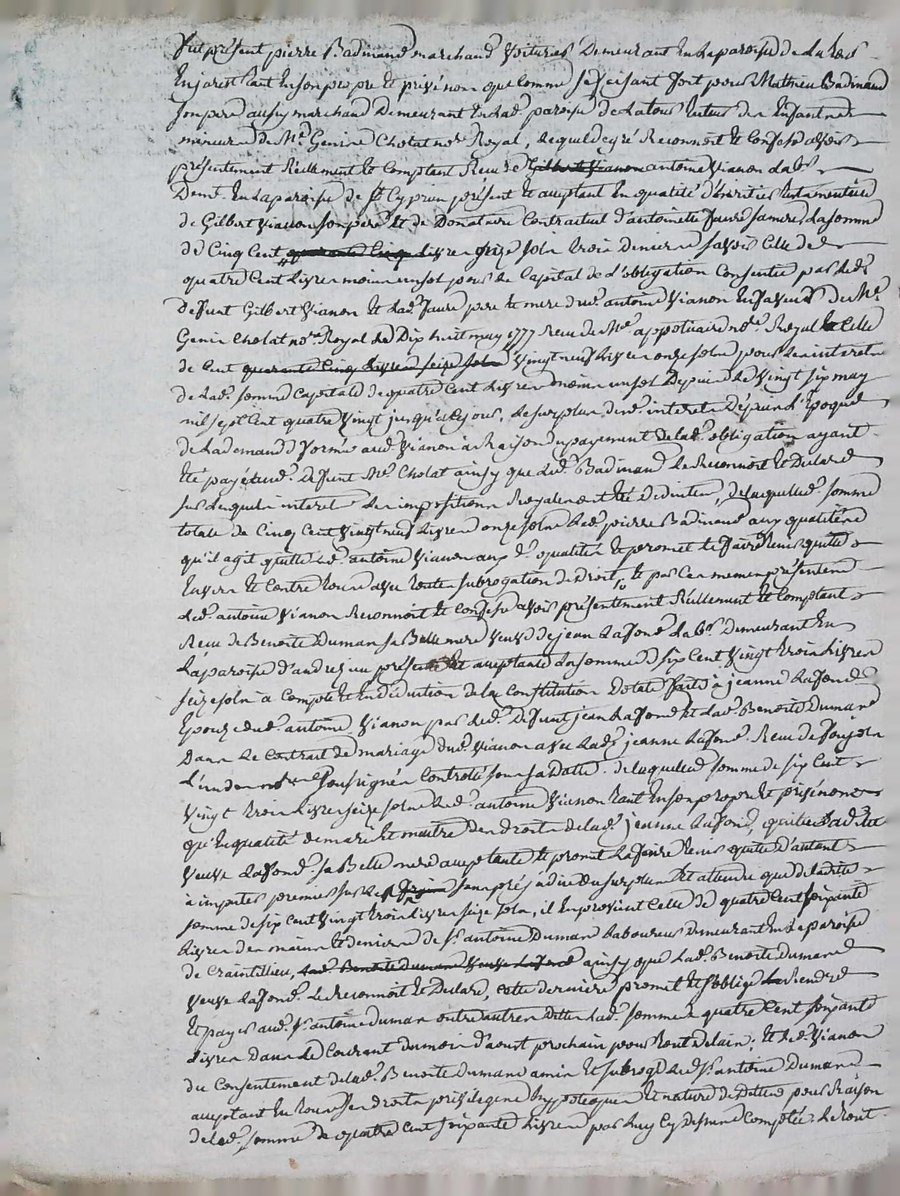 Fut présent pierre Badinand marchand voiturier Demeurant En la paroisse de La tour
En jarest tant En son propre et privé nom que comme se faisant fort pour Mathieu Badinand
son pere aussy marchand Demeurant En lad. paroisse de Latour tuteur des Enfants
mineurs de Me. Genire Cholat nore. Royal, Lequel de gré Reconnoit et Confesse avoir
présentement Réellement et Comptant Receu de Gilbert Vianon antoine Vianon labr.
Demt. En la paroisse de St. Cyprien présent et acceptant En qualité d'héritier testamentaire
de Gilbert Vianon son pere et de Donataire Contractuel d'antoinette faure sa mere, La somme
de Cinq Cent quarante Cinq Livres seize sols trois Deniers savoir Celle de
quatre Cent Livres moins un sol pour le Capital de l'obligation Consentie par led.
deffunt Gilbert Vianon et lad. faure pere et mere dud. antoine Vianon En faveur de Me.
Genire Cholat nore. Royal le Dix huit may 1777 receu de Me. appotuaire nore. Royal et Celle
de Cent quarante Cinq Livres seize sols Vingt neuf Livres onze sols pour les interets
de lad. somme Capitale de quatre Cent Livres moins un sol Depuis le Vingt six may
mil sept Cent quatre Vingt jusqu'à ce jour, Le surplus desd. interets Depuis l'Epoque
de la demande formée aud. Vianon à Raison du payement de lad. obligation ayant
été payé aud. Deffunt Me. Cholat ainsy que led. Badinand Le Reconnoit et Declare
sur lesquels interets Les impositions Royales ont été Deduites, de laquelle somme
totale de Cinq Cent Vingt neuf Livres onze sols Led. pierre Badinand aux qualités
qu'il agit quitte led. antoine Vianon aux d. qualités et promet le faire tenir quitte
Envers et Contre tous avec toute subrogation de Droit, et par Ces memes présentes
Led. antoine Vianon Reconnoit et Confesse avoir présentement Réellement et Comptant
Receu de Benoite Dumas sa Belle mere Veuve de jean Lafond Labr. Demeurant En
La paroisse d'andrezieu présente et acceptante La somme de six Cent Vingt trois Livres
seize sols à Compte et En Deduction de la Constitution Dotale faite à jeanne Lafond
Epouse dud. antoine Vianon par led. Deffunt jean Lafond et lad. Benoite Dumas
Dans Le Contrat de mariage dud. Vianon avec lad. jeanne Lafond. Receu de
L'un des nores. Soussignés Controlé sous sa Datte. de laquelle somme de six Cent
Vingt trois Livres seize sols Led. antoine Vianon tant En son propre et privé nom
qu'En qualité de mari et maitre des droits de lad. jeanne Lafond, quitte lad.
Veuve Lafond sa Belle mere acceptante et promet La faire tenir quitte d'autant
à imputer premier sur les sans préjudice du surplus et attendu que de ladite
somme de six Cent Vingt trois Livres seize sols, il En provient Celle de quatre Cent soixante
Livres des mains et deniers de Sr. antoine Dumas Laboureur Demeurant En la paroisse
de Craintillieu, Lad. Benoite Dumas Veuve Lafond ainsy que lad. Benoite Dumas
Veuve Lafond Le Reconnoit et Declare, Cette derniere promet et s'oblige Rendre
et payer aud. Sr. antoine Dumas outre autres Dettes Lad. somme de quatre Cent soixante
Livres Dans le Courant du mois d'aoust prochain pour tout delain; et led. Vianon
du Consentement de lad. Benoite Dumas a mis et subrogé led. Sr. antoine Dumas
acceptant En tous ses droits privileges hypoteques et nature de Dettes pour Raison
de lad. somme de quatre Cent soixante Livres par luy Cy Dessus Comptée: Le tout